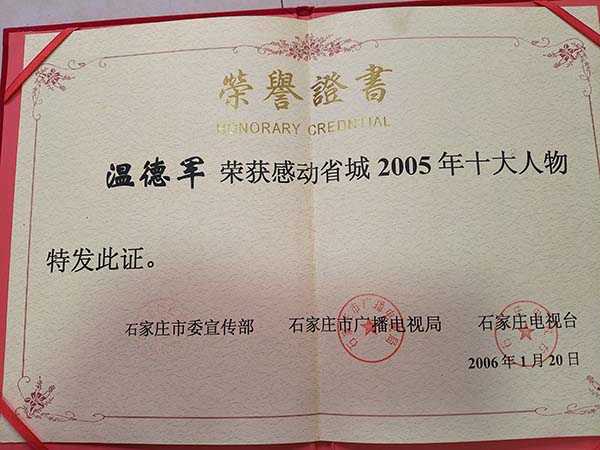 榮譽證書
HONORARY CREDNTIAL
温德军 荣获感动省城 2005 年十大人物
特发此证。
石家庄市委宣传部 石家庄市广播电视局 石家庄电视台
2006 年 1 月 20 日